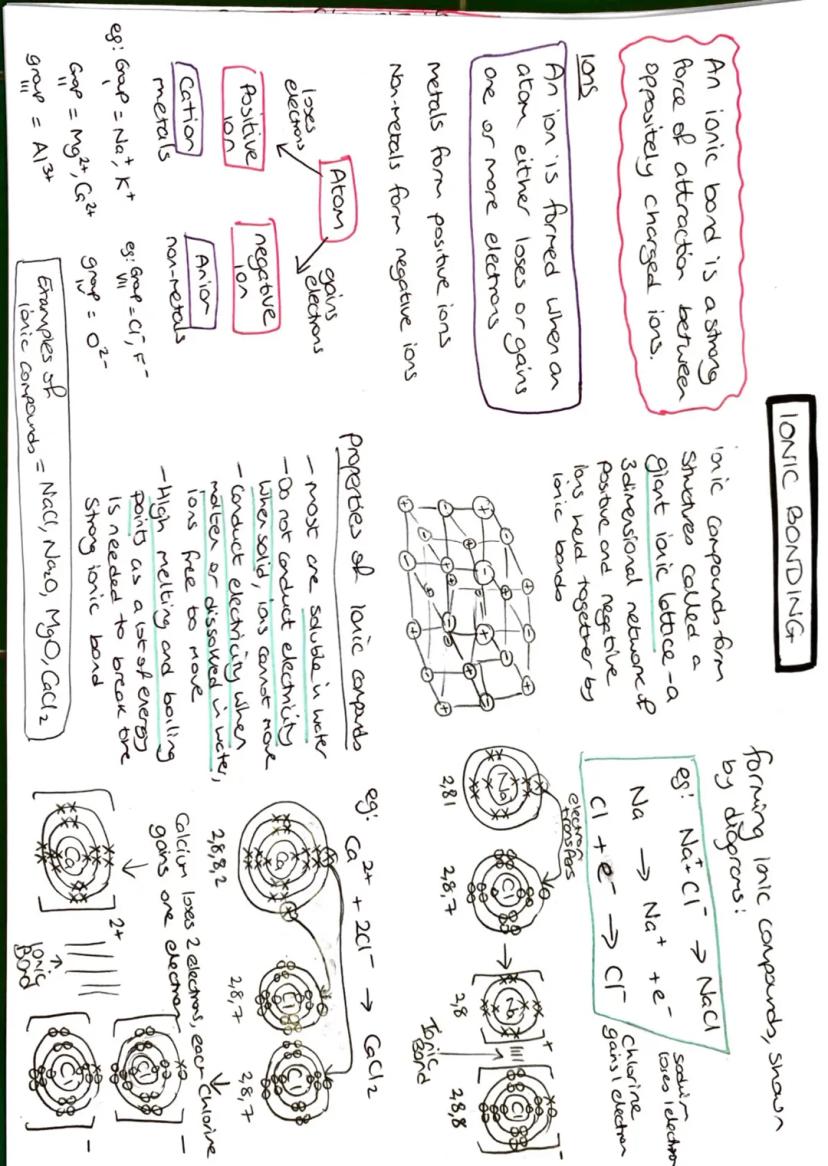 IONIC BONDING
An ionic bond is a strong
force of attraction between
oppositely charged ions.
Ions
An ion is formed when an
atom either loses or gains
one or more electrons
metals form positive ions
Non-metals form negative ions
Atom
loses
electrons
gains
electrons
Positive
ion
negative
ion
Cation
metals
Anion
non-metals
eg: Group I = Na⁺, K⁺
Group II = Mg²⁺, Ca²⁺
group III = Al³⁺
eg: Group VII = Cl⁻, F⁻
group IV = O²⁻
Examples of
ionic compounds = NaCl, Na₂O, MgO, CaCl₂
ionic compounds form
structures called a
giant ionic lattice - a
3 dimensional network of
Positive and negative
ions held together by
ionic bonds
Properties of ionic compounds
- most are soluble in water
- Do not conduct electricity
when solid, ions cannot move
- conduct electricity when
molten or dissolved in water,
ions free to move
- High melting and boiling
points as a lot of energy
is needed to break the
strong ionic bond
forming ionic compounds, shown
by diagrams:
eg: Na⁺Cl⁻ → NaCl
Na → Na⁺ + e⁻
Cl + e⁻ → Cl⁻
sodium
loses 1 electron
Chlorine
gains 1 electron
electron
transfers
Na
Cl
→
Na
+
Cl
-
2,8,1
2,8,7
2,8
2,8,8
Ionic
Bond
eg: Ca²⁺ + 2Cl⁻ → CaCl₂
Ca
Cl
Cl
2,8,8,2
2,8,7
2,8,7
Calcium loses 2 electrons, each chlorine
gains one electron
Ca
2+
Ionic
Bond
Cl
-
Cl
-